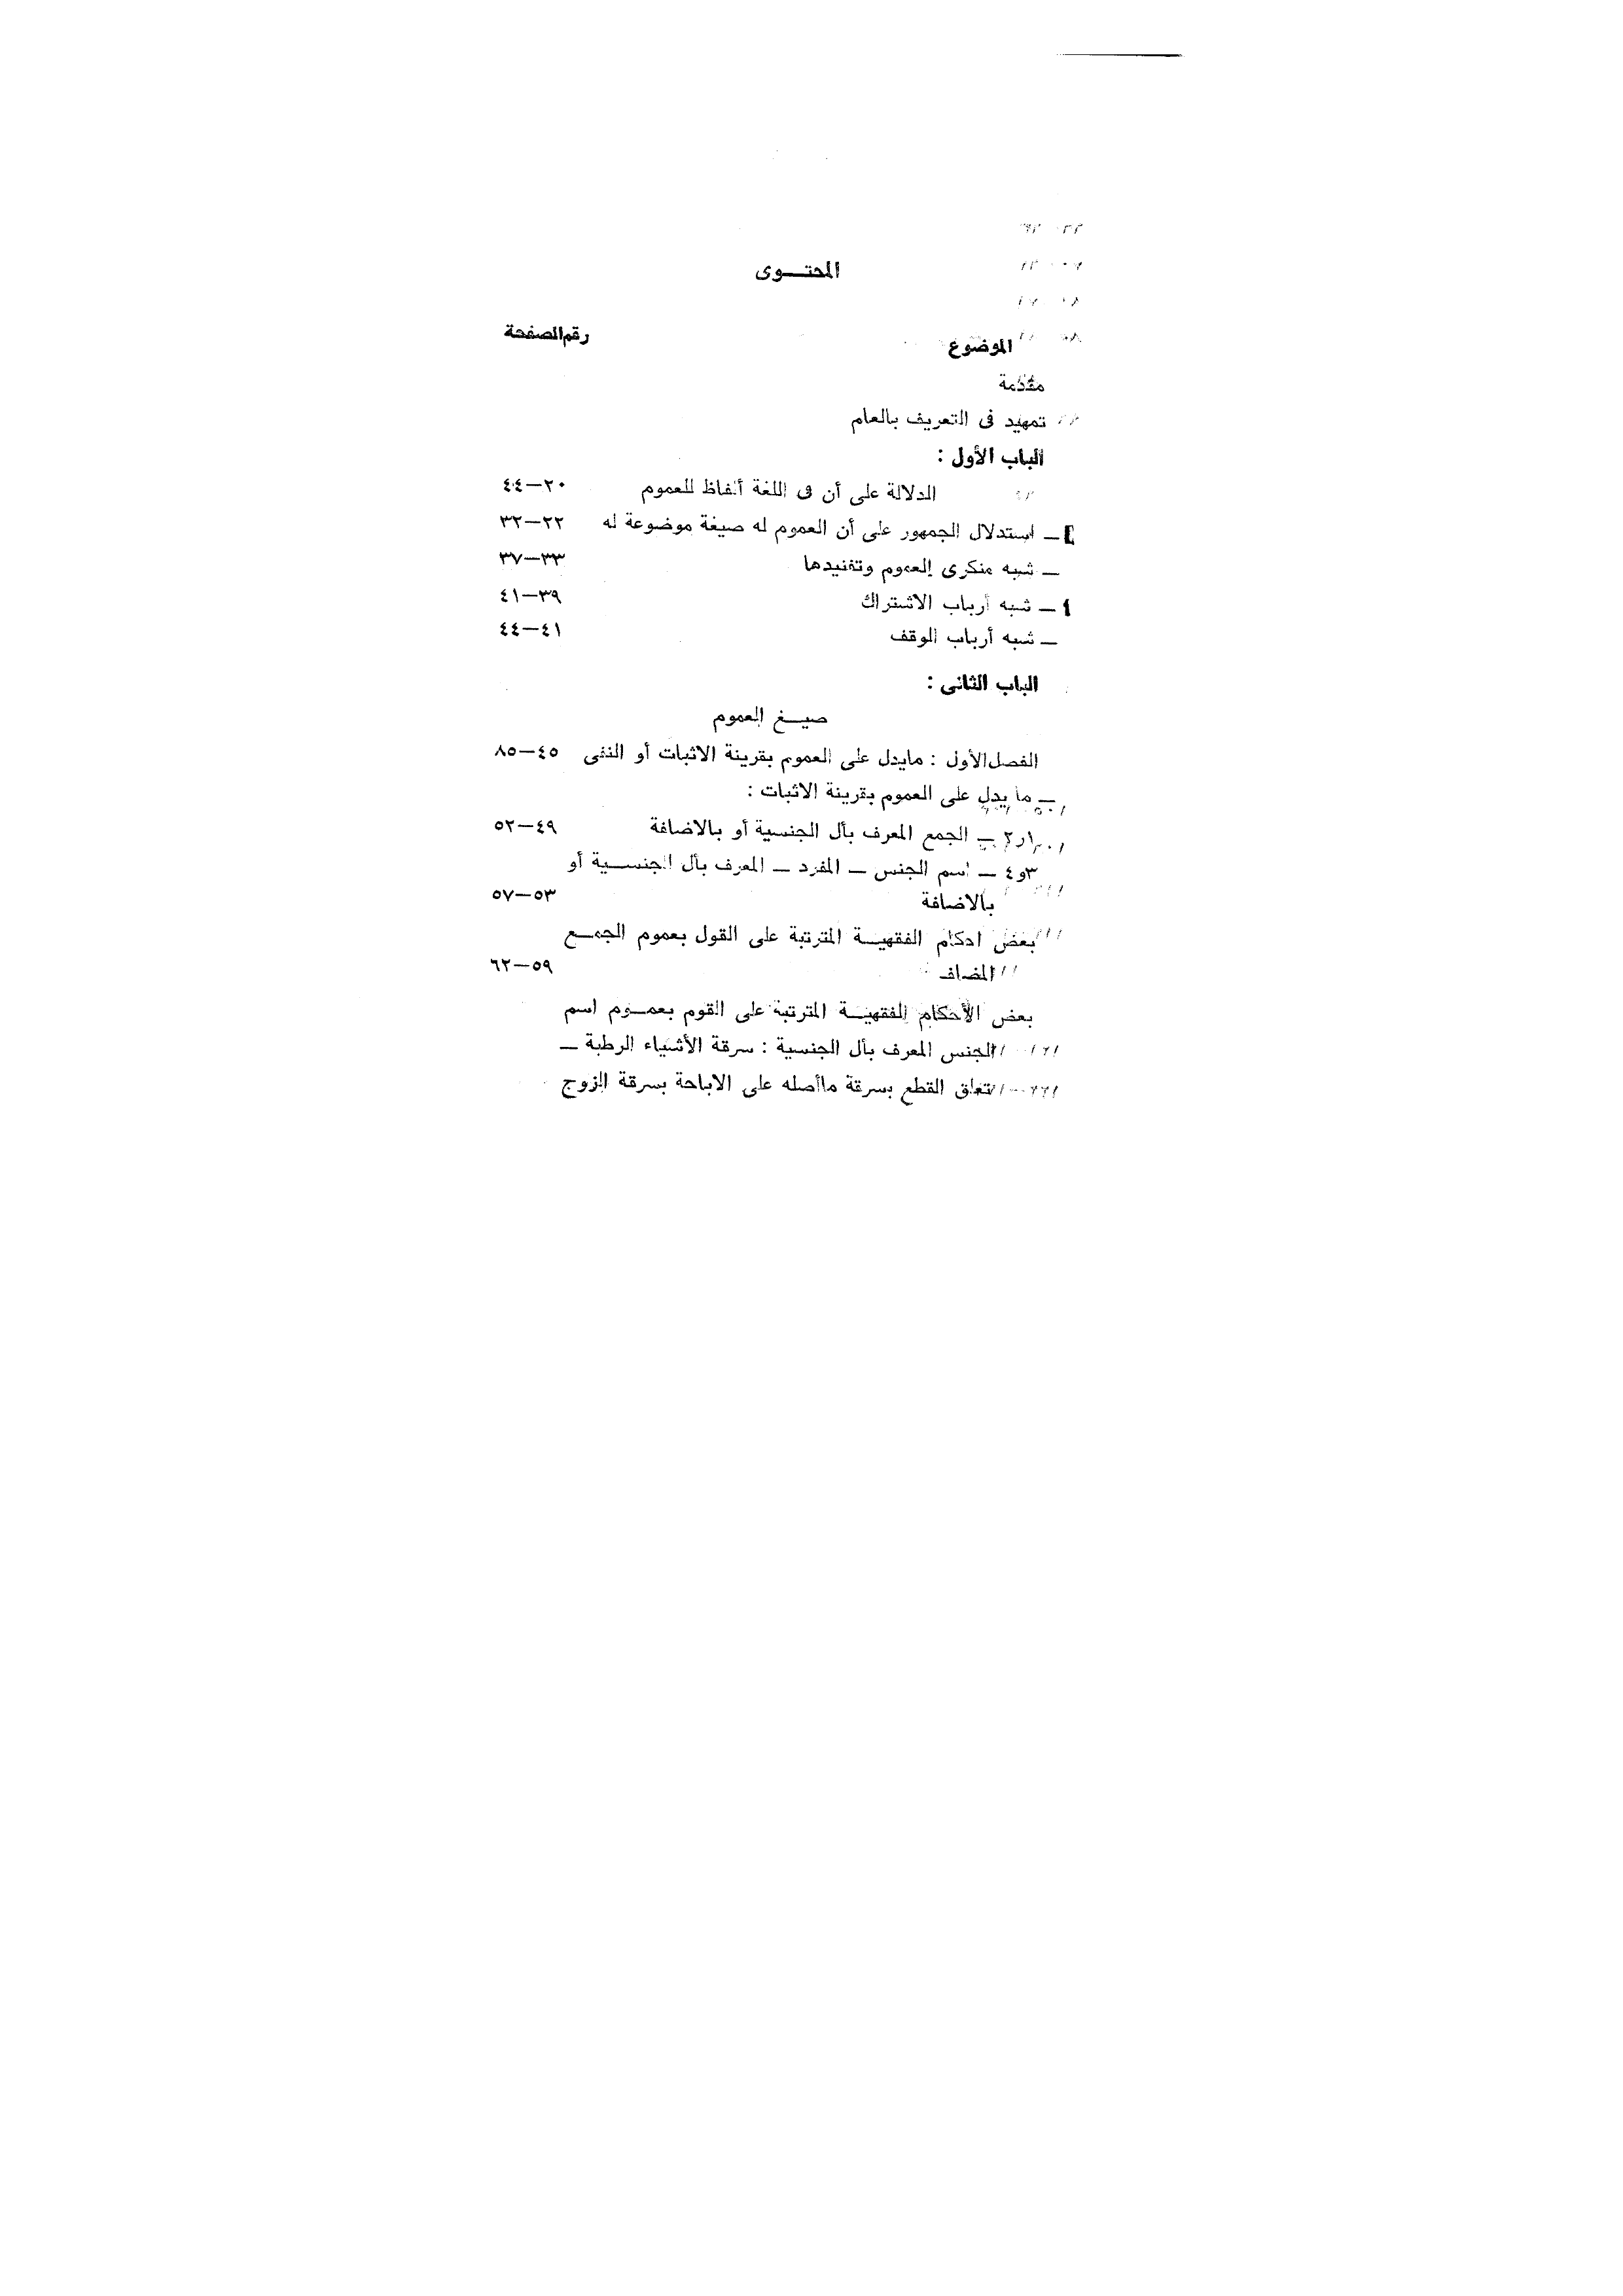 المحتـــوى
الموضوع رقم الصفحة
مقدمة
تمهيد فى التعريف بالعام
الباب الأول :
الدلالة على أن فى اللغة ألفاظ للعموم ٢٠—٤٤
— استدلال الجمهور على أن العموم له صيغة موضوعة له ٢٢—٣٢
— شبه منكرى العموم وتفنيدها ٣٣—٣٧
— شبه أرباب الاشتراك ٣٩—٤١
— شبه أرباب الوقف ٤١—٤٤
الباب الثانى :
صيــغ العموم
الفصل الأول : مايدل على العموم بقرينة الاثبات أو النفى ٤٥—٨٥
— ما يدل على العموم بقرينة الاثبات :
١و٢ — الجمع المعرف بأل الجنسية أو بالاضافة ٤٩—٥٢
٣و٤ — اسم الجنس — المفرد — المعرف بأل الجنســـية أو
بالاضافة ٥٣—٥٧
بعض احكام الفقهيــة المترتبة على القول بعموم الجمــع
المضاف ٥٩—٦٢
بعض الأحكام الفقهيــة المترتبة على القوم بعمــوم اسم
الجنس المعرف بأل الجنسية : سرقة الأشياء الرطبة —
تعلق القطع بسرقة ماأصله على الاباحة بسرقة الزوج